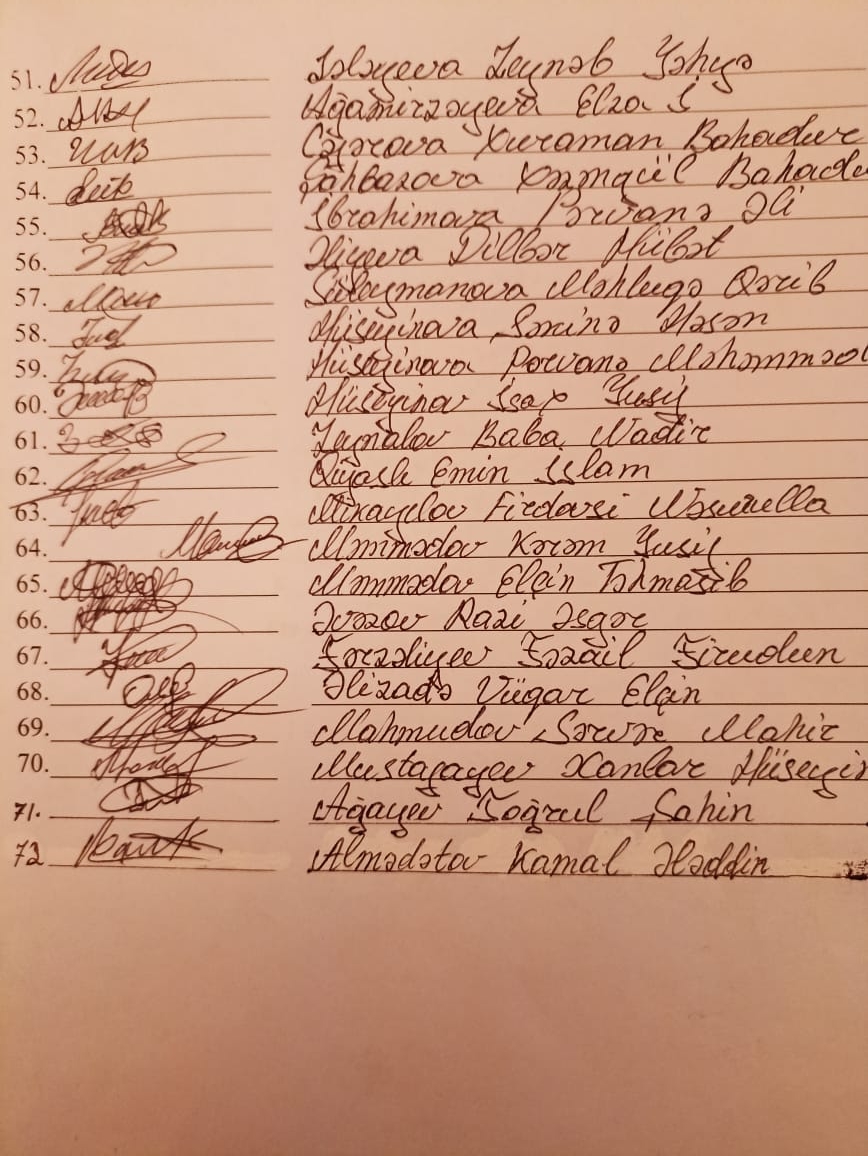 51. Lələyeva Zeynəb Yəhyə
52. Ağamirzəyeva Elza İ
53. Cəfərova Xuraman Bahadur
54. Şahbazova Xanımgül Bahadu
55. İbrahimova Pərvanə Əli
56. Əliyeva Dilbər Hübət
57. Süleymanova Məhluqə Qərib
58. Hüseyinova Səkinə Həsən
59. Hüseyinova Pərvanə Məhəmməd
60. Hüseyinov İsax Yusif
61. Zeynalov Baba Nadir
62. Qiyaslı Emin İslam
63. Mikayelov Firdovsi
64. Məmmədov Kərəm Yusif
65. Məmmədov Elçin Təhmasib
66. Əvəzov Razi Əsgər
67. Fərzəliyev Fəzail Firudun
68. Əlizadə Vüqar Elçin
69. Mahmudov Sərvər Mahir
70. Mustafayev Xanlar Hüseyin
71. Ağayev Toğrul Şahin
72 Almədətov Kamal Ələddin